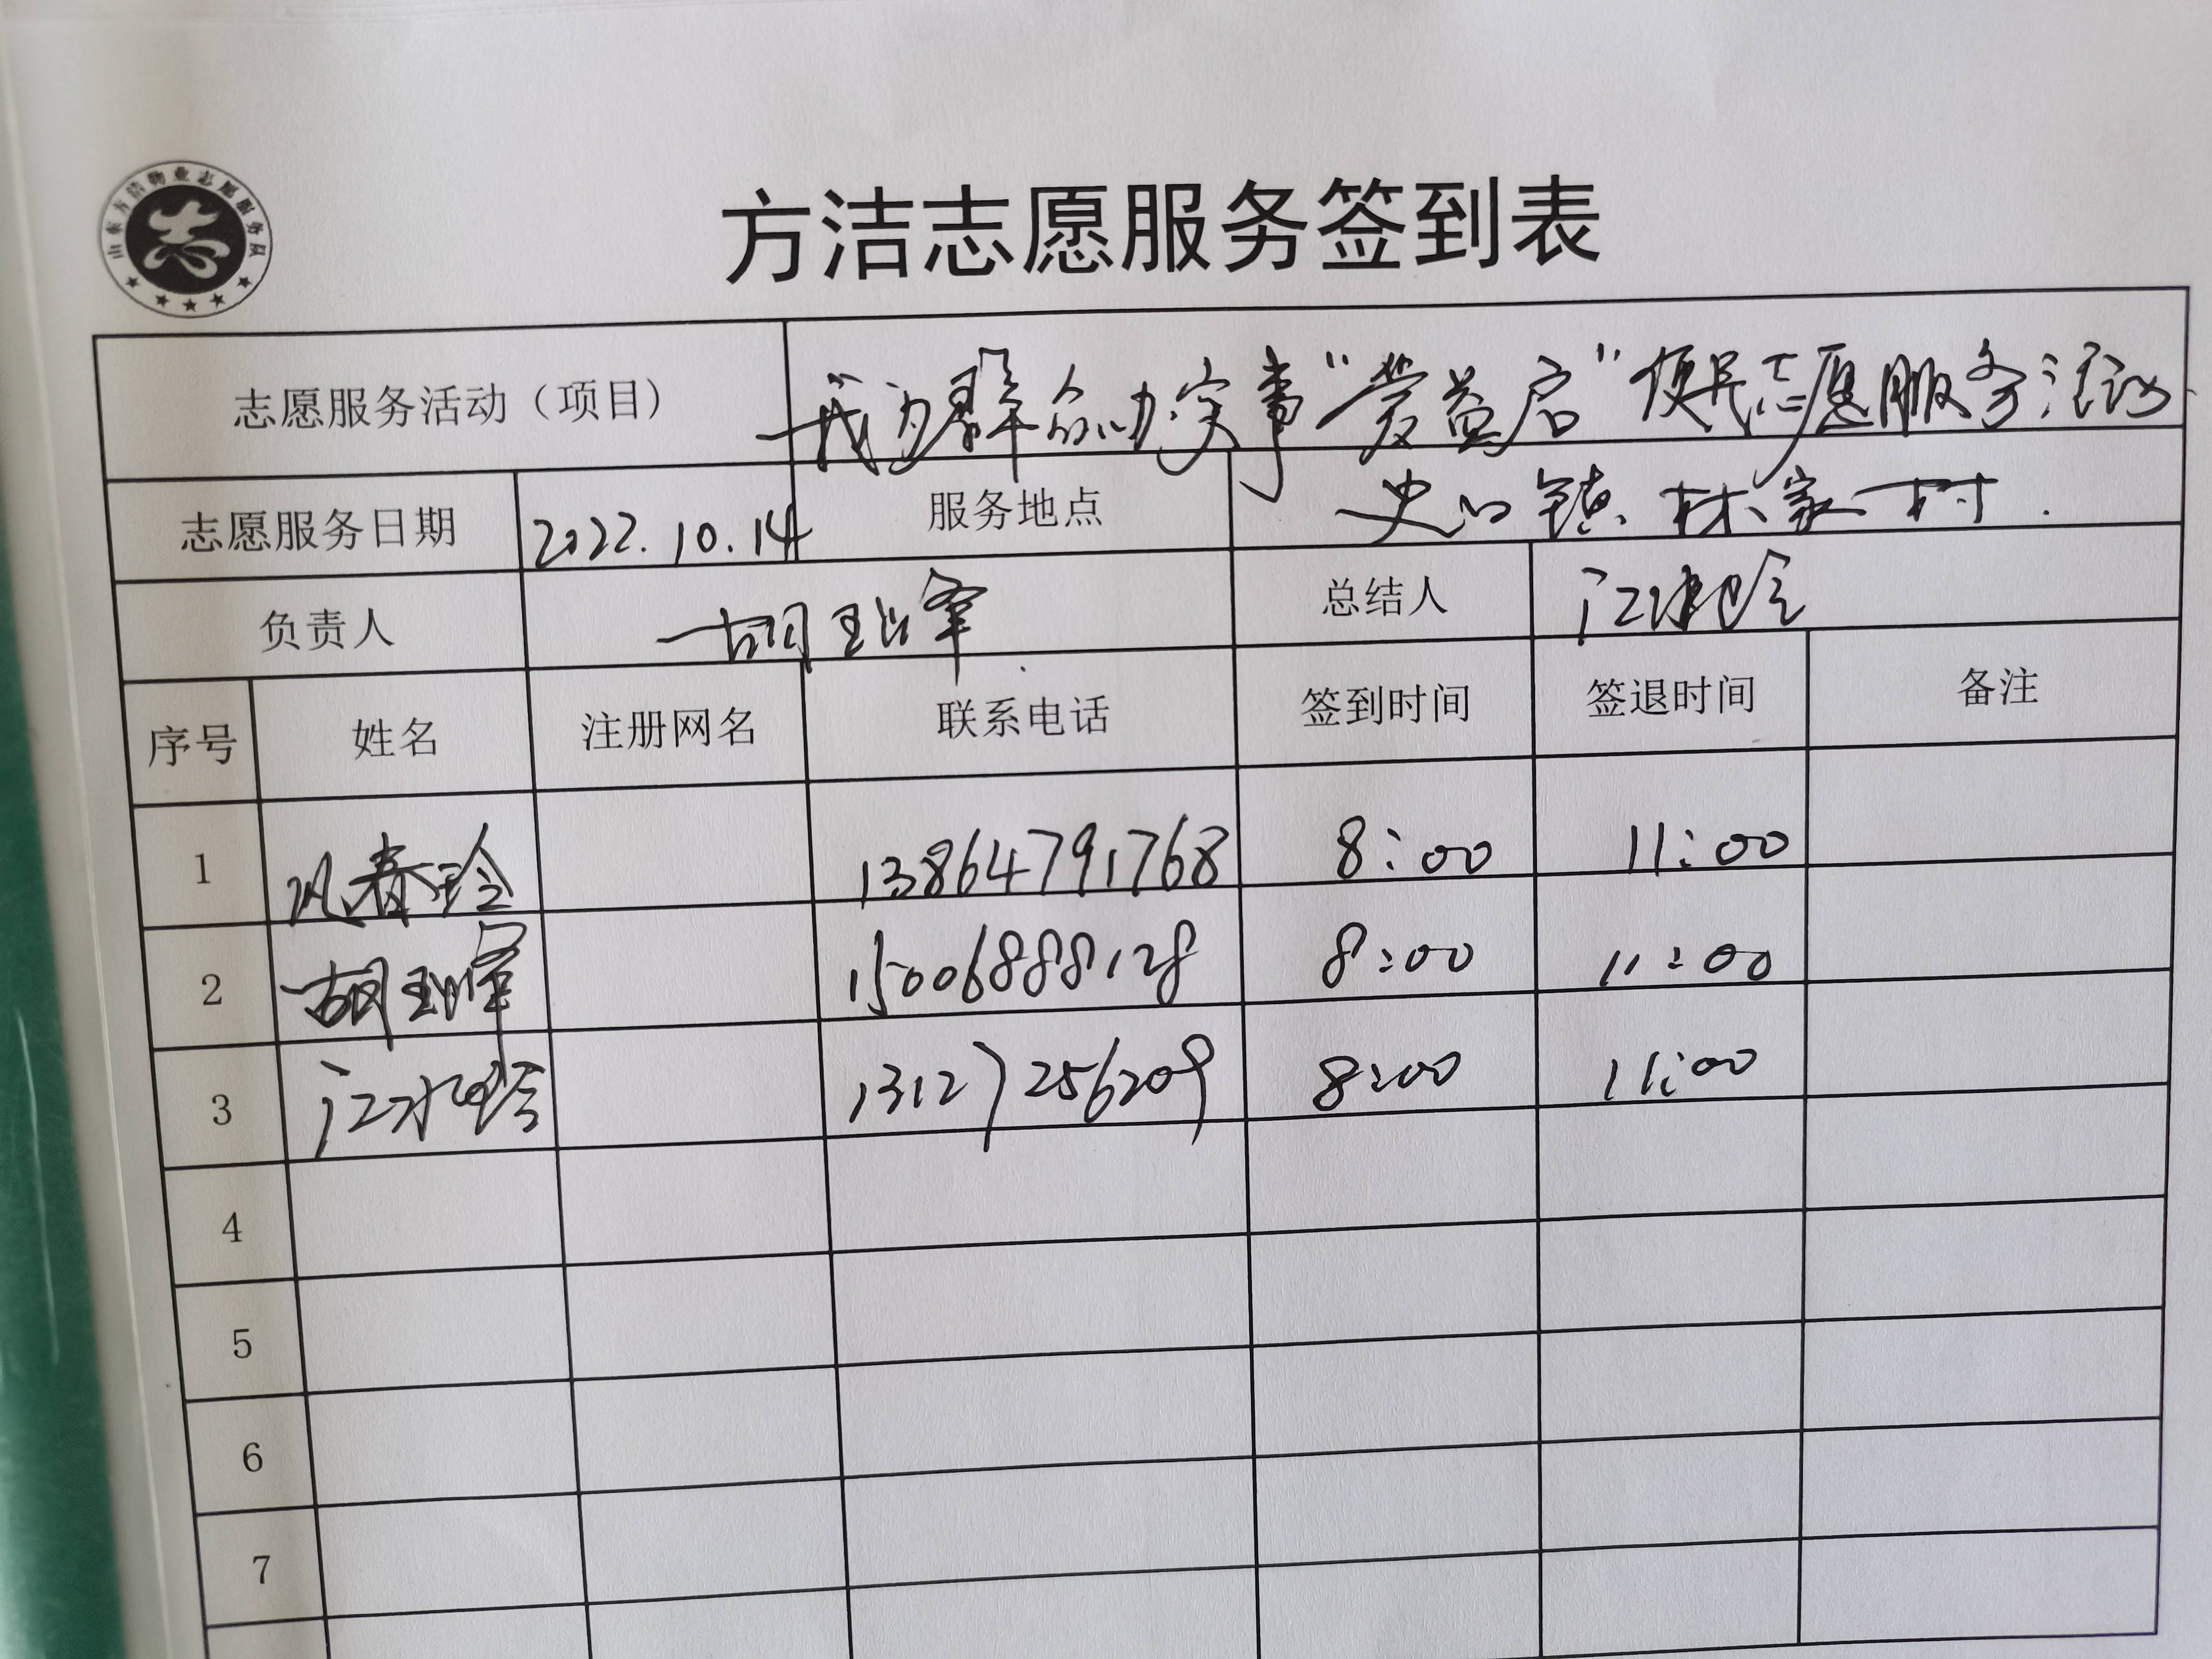 山东方洁物业志愿服务队
方洁志愿服务签到表
志愿服务活动（项目） 我为群众办实事“爱益启”便民志愿服务活动
志愿服务日期 2022.10.14 服务地点 史口镇 林家村.
负责人 胡 总结人 江
序号 姓名 注册网名 联系电话 签到时间 签退时间 备注
1 春玲 13864791768 8:00 11:00
2 胡 15006888128 8:00 11:00
3 江 13127256209 8:00 11:00
4
5
6
7